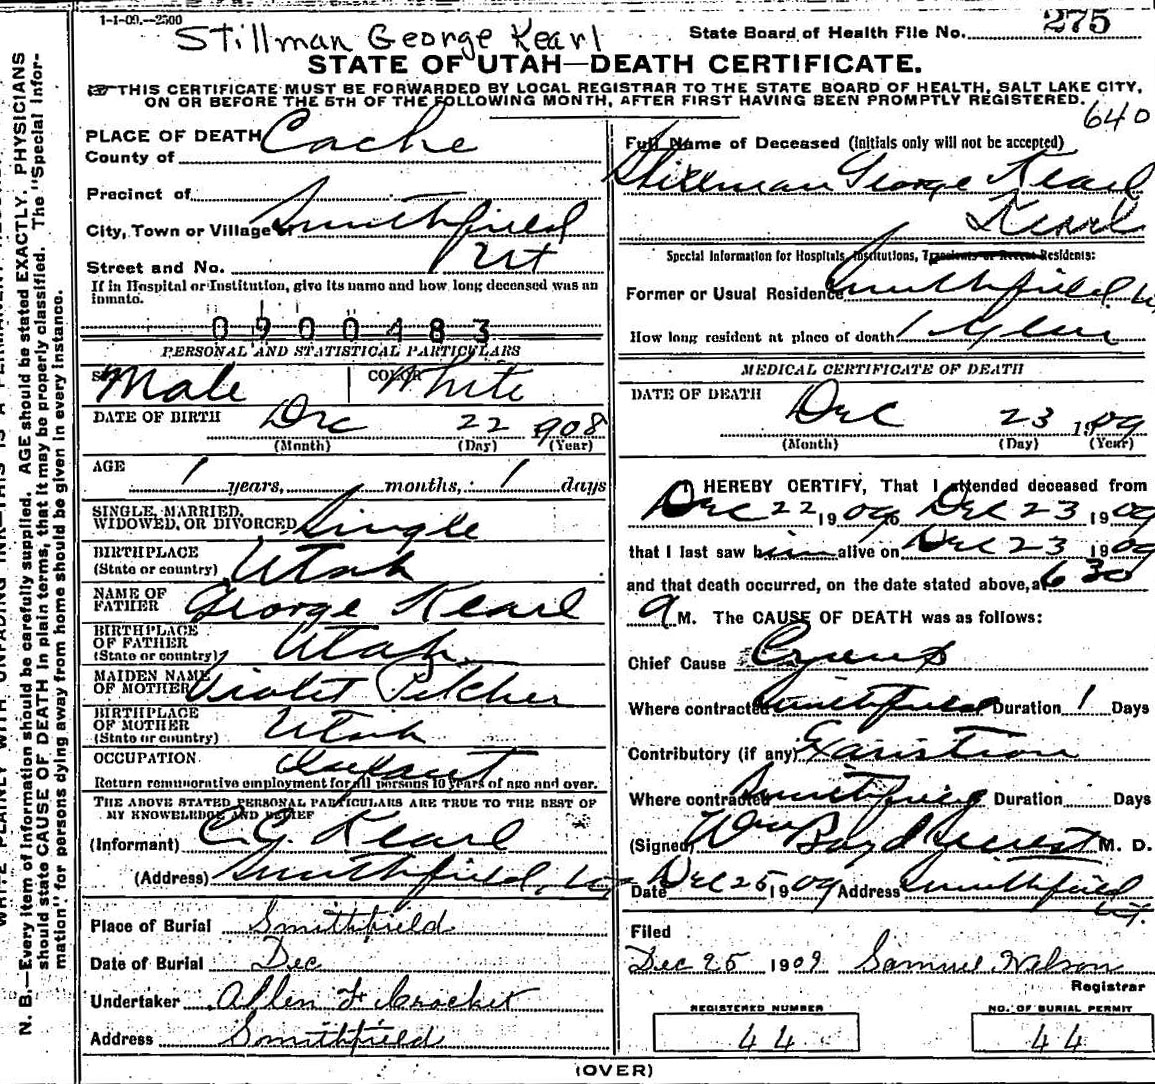 1-1-09.--2500
Stillman George Kearl
State Board of Health File No. 275
STATE OF UTAH—DEATH CERTIFICATE.
THIS CERTIFICATE MUST BE FORWARDED BY LOCAL REGISTRAR TO THE STATE BOARD OF HEALTH, SALT LAKE CITY,
ON OR BEFORE THE 5TH OF THE FOLLOWING MONTH, AFTER FIRST HAVING BEEN PROMPTLY REGISTERED.
640
PLACE OF DEATH
County of Cache
Precinct of
City, Town or Village of Smithfield
Street and No. Ut
If in Hospital or Institution, give its name and how long deceased was an
inmate.
0900483
PERSONAL AND STATISTICAL PARTICULARS
SEX Male COLOR White
DATE OF BIRTH Dec 22 1908
(Month) (Day) (Year)
AGE
1 years, months, 1 days
SINGLE, MARRIED,
WIDOWED, OR DIVORCED Single
BIRTHPLACE
(State or country) Utah
NAME OF
FATHER George Kearl
BIRTHPLACE
OF FATHER
(State or country) Utah
MAIDEN NAME
OF MOTHER Violet Pitcher
BIRTHPLACE
OF MOTHER
(State or country) Utah
OCCUPATION
Return remunerative employment for all persons 10 years of age and over.
THE ABOVE STATED PERSONAL PARTICULARS ARE TRUE TO THE BEST OF
MY KNOWLEDGE AND BELIEF
(Informant) C. G. Kearl
(Address) Smithfield, Ut
Place of Burial Smithfield
Date of Burial Dec
Undertaker Allen
Address Smithfield
Full Name of Deceased (Initials only will not be accepted)
Stillman George Kearl
Kearl
Special Information for Hospitals, Institutions, Transients or Recent Residents:
Former or Usual Residence Smithfield Ut
How long resident at place of death 1 year
MEDICAL CERTIFICATE OF DEATH
DATE OF DEATH
Dec 23 1909
(Month) (Day) (Year)
I HEREBY CERTIFY, That I attended deceased from
Dec 22 1909 to Dec 23 1909
that I last saw him alive on Dec 23 1909
and that death occurred, on the date stated above, at 630
a M. The CAUSE OF DEATH was as follows:
Chief Cause Croup
Where contracted Smithfield Duration 1 Days
Contributory (if any)
Where contracted Smithfield Duration Days
(Signed) Wm Boyd M. D.
Date Dec 25 1909 Address Smithfield
Ut.
Filed
Dec 25 1909 Samuel Nelson
Registrar
REGISTERED NUMBER
44
NO. OF BURIAL PERMIT
44
(OVER)
N. B.—Every item of information should be carefully supplied. AGE should be stated EXACTLY. PHYSICIANS
should state CAUSE OF DEATH in plain terms, that it may be properly classified. The "Special Infor-
mation" for persons dying away from home should be given in every instance.